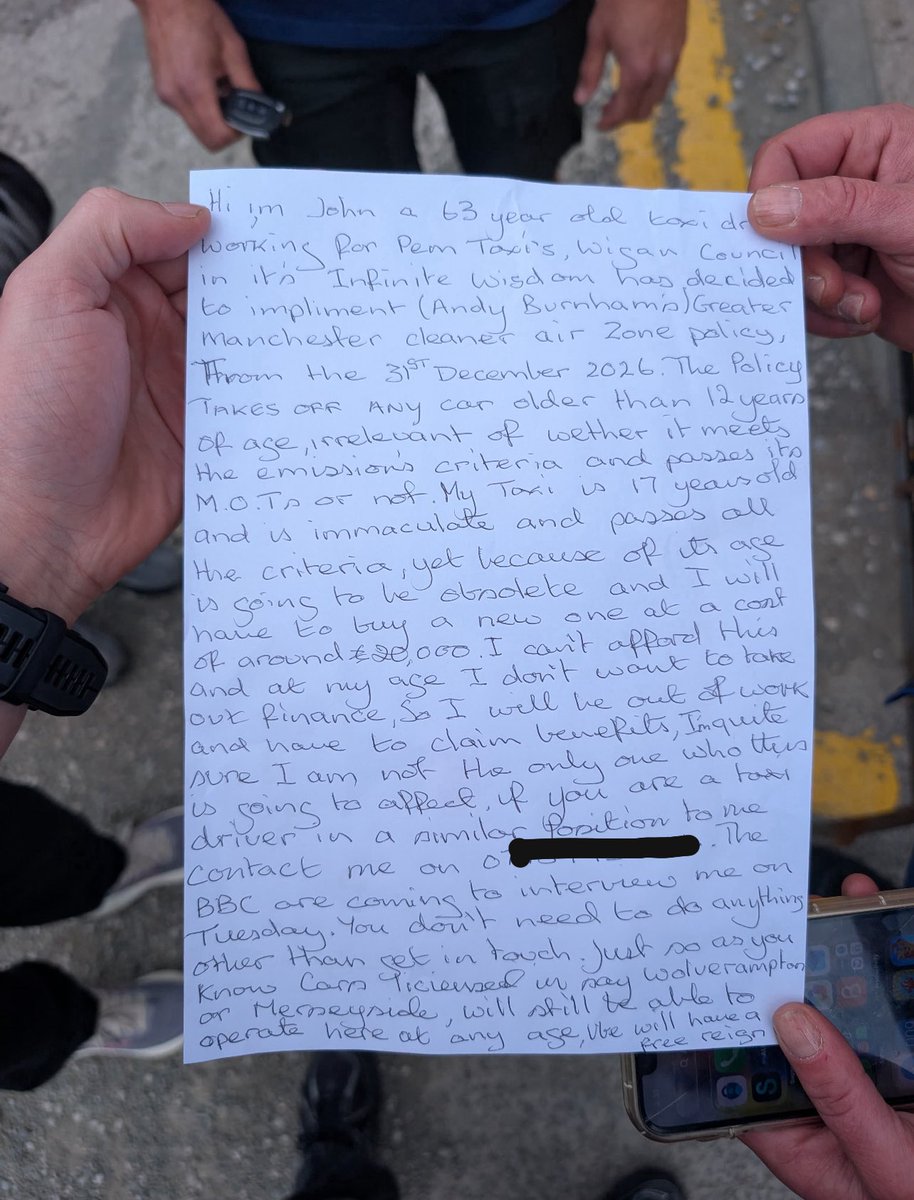 Hi i,m John a 63 year old taxi dr
working for Pem Taxi's, Wigan Council
in it's Infinite Wisdom has decided
to impliment (Andy Burnham's) Greater
Manchester cleaner air Zone policy,
From the 31ST December 2026. The Policy
TAKES OFF ANY car older than 12 years
of age, irrelevant of wether it meets
the emission's criteria and passes its
M.O.Ts or not. My Taxi is 17 years old
and is immaculate and passes all
the criteria, yet because of its age
is going to be obsolete and I will
have to buy a new one at a cost
of around £20,000. I can't afford this
and at my age I don't want to take
out finance, So I will be out of work
and have to claim benefits, Im quite
sure I am not the only one who this
is going to affect, if you are a taxi
driver in a similar Position to me
contact me on 0 . The
BBC are coming to interview me on
Tuesday. You don't need to do anything
other than get in touch. Just so as you
know Cars licensed in say Wolverampton
or Merseyside, will still be able to
operate here at any age, will have a
free reign